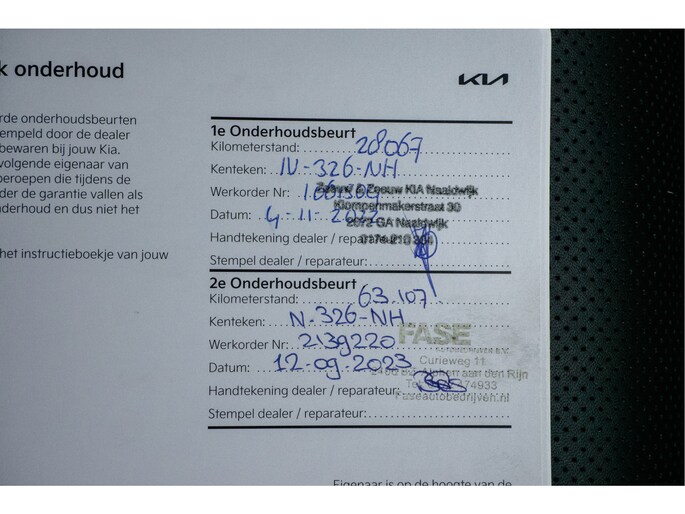 k onderhoud
KIA
rde onderhoudsbeurten
empeld door de dealer
bewaren bij jouw Kia.
volgende eigenaar van
beroepen die tijdens de
der de garantie vallen als
nderhoud en dus niet het
het instructieboekje van jouw
1e Onderhoudsbeurt
Kilometerstand: 28.067
Kenteken: N-326-NH
Werkorder Nr:
Zeeuw & Zeeuw KIA Naaldwijk
Klompenmakerstraat 30
Datum: 4-11-2022
GA Naaldwijk
Handtekening dealer / reparateur:
Stempel dealer / reparateur:
2e Onderhoudsbeurt
Kilometerstand: 63.107
Kenteken: N-326-NH
FASE
Werkorder Nr: 2139220
Curieweg 11
Datum: 12-09-2023
Alphen aan den Rijn
Handtekening dealer / reparateur:
Faseautobedrijven.nl
Stempel dealer / reparateur:
Eigenaar is op de hoogte van de